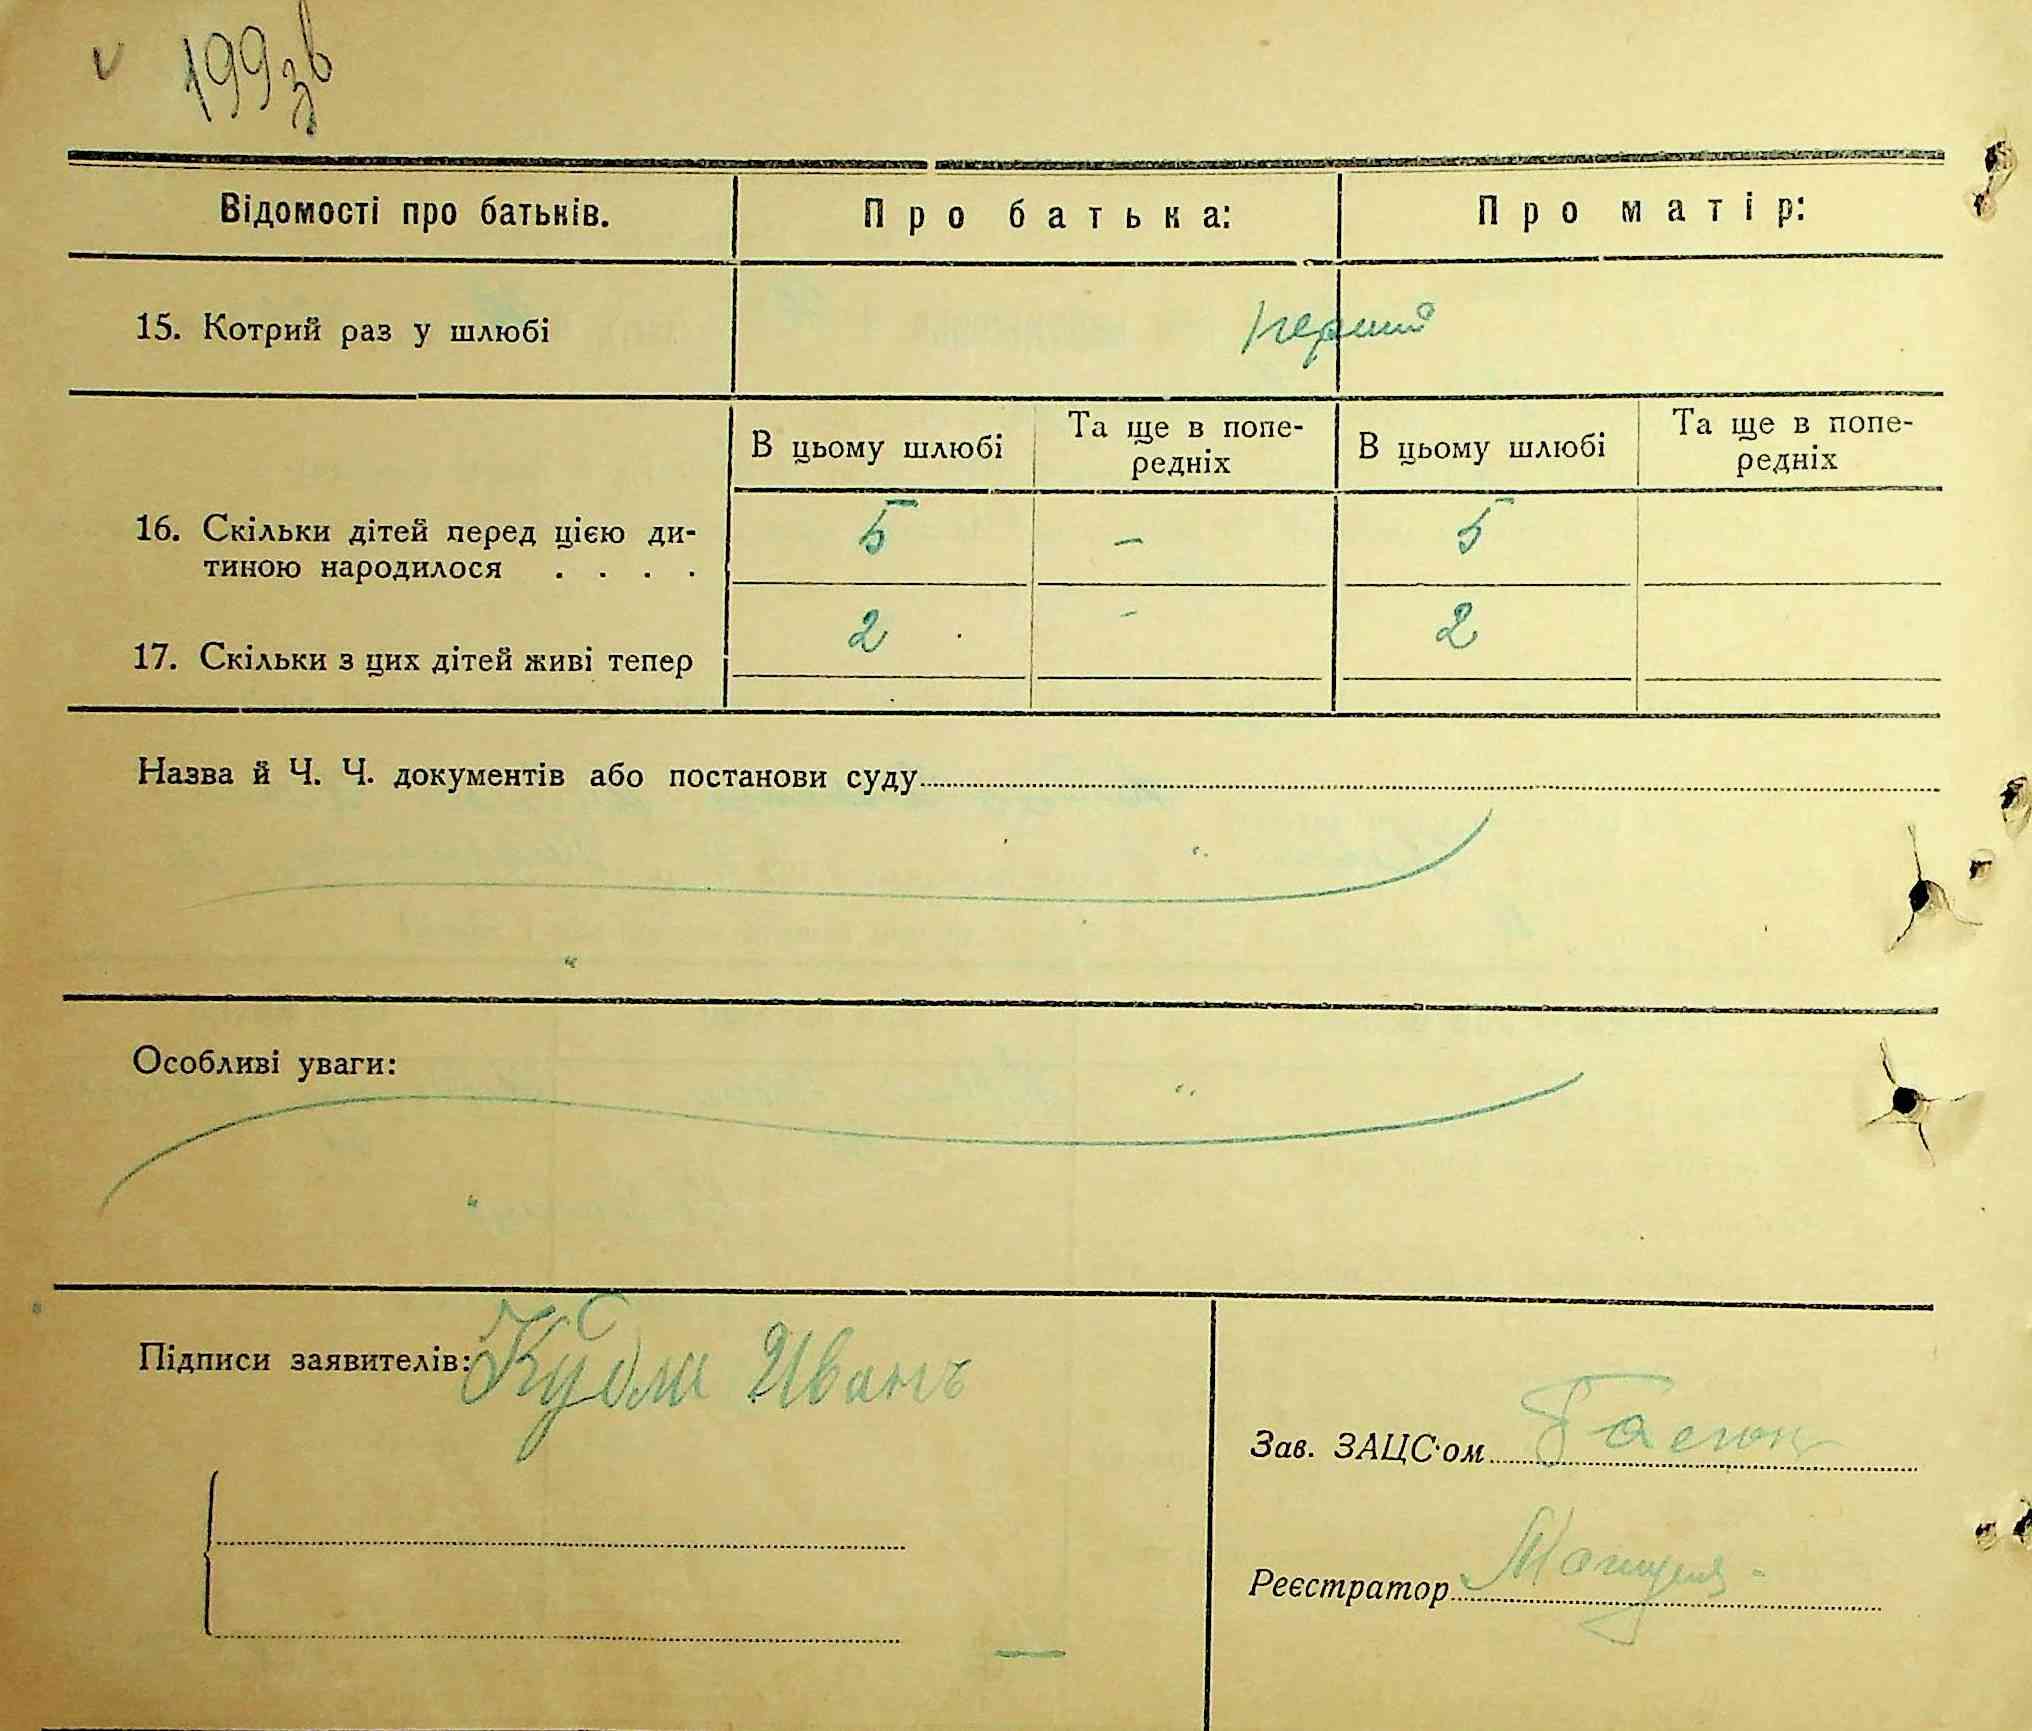 199 зв
Відомості про батьків. Про батька: Про матір:
15. Котрий раз у шлюбі перший
В цьому шлюбі Та ще в попе-редніх В цьому шлюбі Та ще в попе-редніх
16. Скільки дітей перед цією ди- 5 – 5
тиною народилося . . . .
17. Скільки з цих дітей живі тепер 2 - 2
Назва й Ч. Ч. документів або постанови суду
Особливі уваги:
Підписи заявителів: Иванъ
Зав. ЗАЦС·ом
Реєстратор